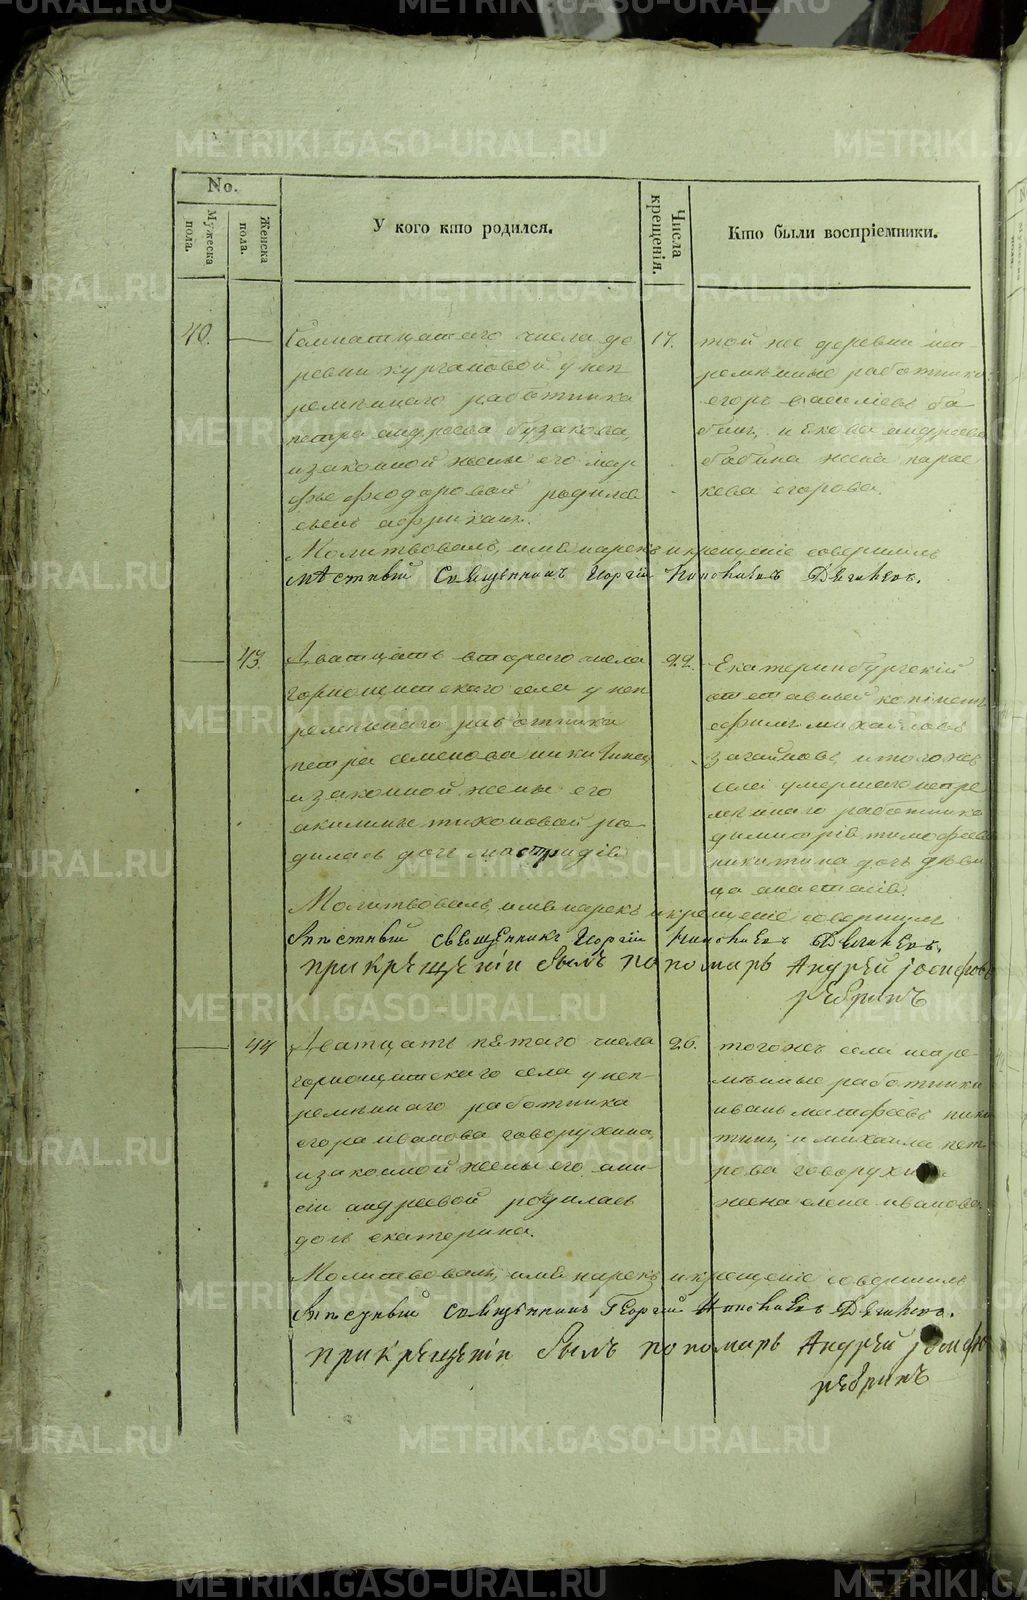 No.
Мужеска пола.
Женска пола.
У кого кто родился.
Числа крещенія.
Кто были воспріемники.
40.
Семнатцатого числа де
ревни кургановой у неп
ремѣннаго работника
петра андреева бузакова,
и законной жены его мар
фы феодоровой родился
сынъ африканъ.
17.
той же деревни неп
ремѣнные работники
егоръ василіевъ ба
бинъ, и якова андреева
бабина жена парас
кева егорова.
Молитвовалъ, имя нарекъ и крещеніе совершилъ
мѣстный Священникъ Георгій Кононовъ Дягилевъ.
43.
Дватцать втораго числа
горнощитскаго села у неп
ремѣннаго работника
петра семенова никитина,
и законной жены его
акилины тихоновой ро
дилась дочь мастридія
22.
Екатеринбургскій
отставной копіистъ
ефимъ михайловъ
загайновъ, и того же
села умершаго непре
мѣннаго работника
димитрія тимофеева
никитина дочь дѣви
ца анастасія.
Молитвовалъ, имя нарекъ и крещеніе совершилъ
мѣстный священникъ Георгій Кононовъ Дягилевъ.
При крещеніи былъ пономарь Андрей Іосифовъ
Ребринъ
44
Дватцать пятаго числа
горнощитскаго села у неп
ремѣннаго работника
егора иванова говорухина,
и законной жены его ани
сіи андреевой родилась
дочь екатерина.
26.
того же села непре
мѣнные работники
иванъ матфеевъ ники
тинъ, и михаила пет
рова говорухина
жена елена иванова.
Молитвовалъ, имя нарекъ и крещеніе совершилъ
мѣстный священникъ Георгій Кононовъ Дягилевъ.
При крещеніи былъ пономарь Андрей Іосифо
Ребринъ
METRIKI.GASO-URAL.RU